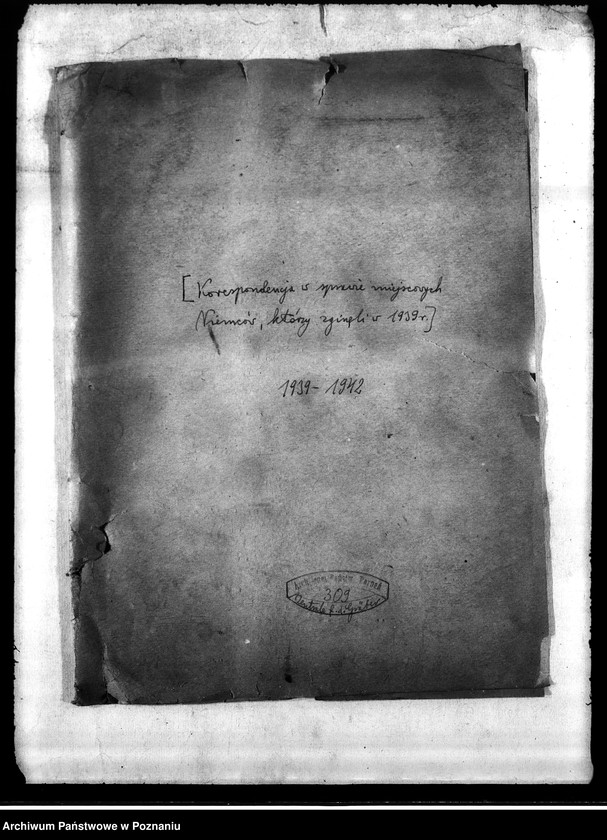 [Korespondencja w sprawie miejscowych
Niemców, którzy zginęli w 1939 r.]
1939 - 1942
Archiwum Państw. Poznań
309
Archiwum Państwowe w Poznaniu